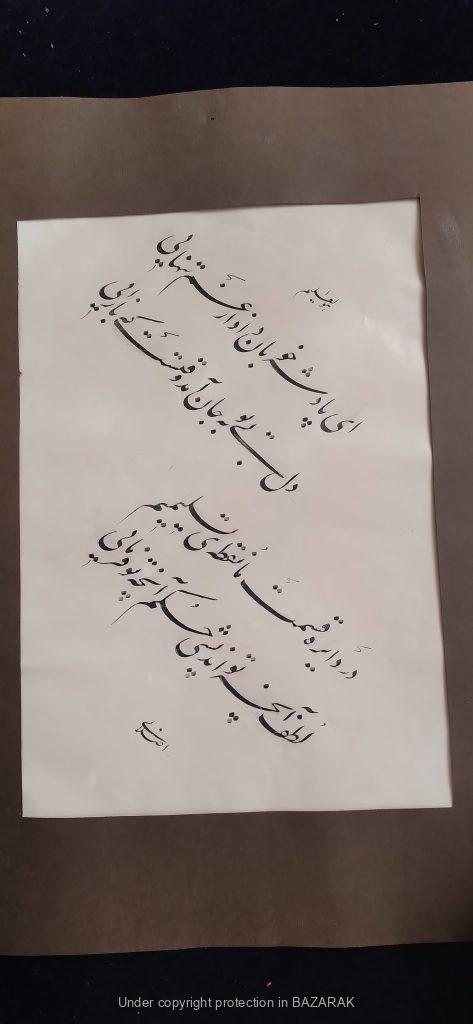 هوالعلیم
ای پادشه خوبان داد از غم تنهایی
دل بی تو به جان آمد وقتست که بازآیی
در دایره قسمت ما نقطه‌ی تسلیمیم
لطف آنچه تو اندیشی حکم آنچه تو فرمایی
Under copyright protection in BAZARAK